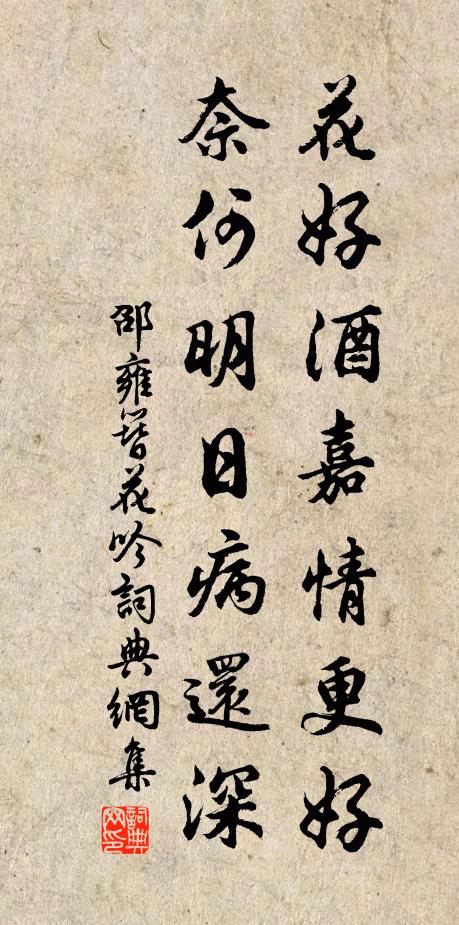 花好酒嘉情更好
奈何明日病還深
邵雍簪花吟詞典網集
詞典
网印